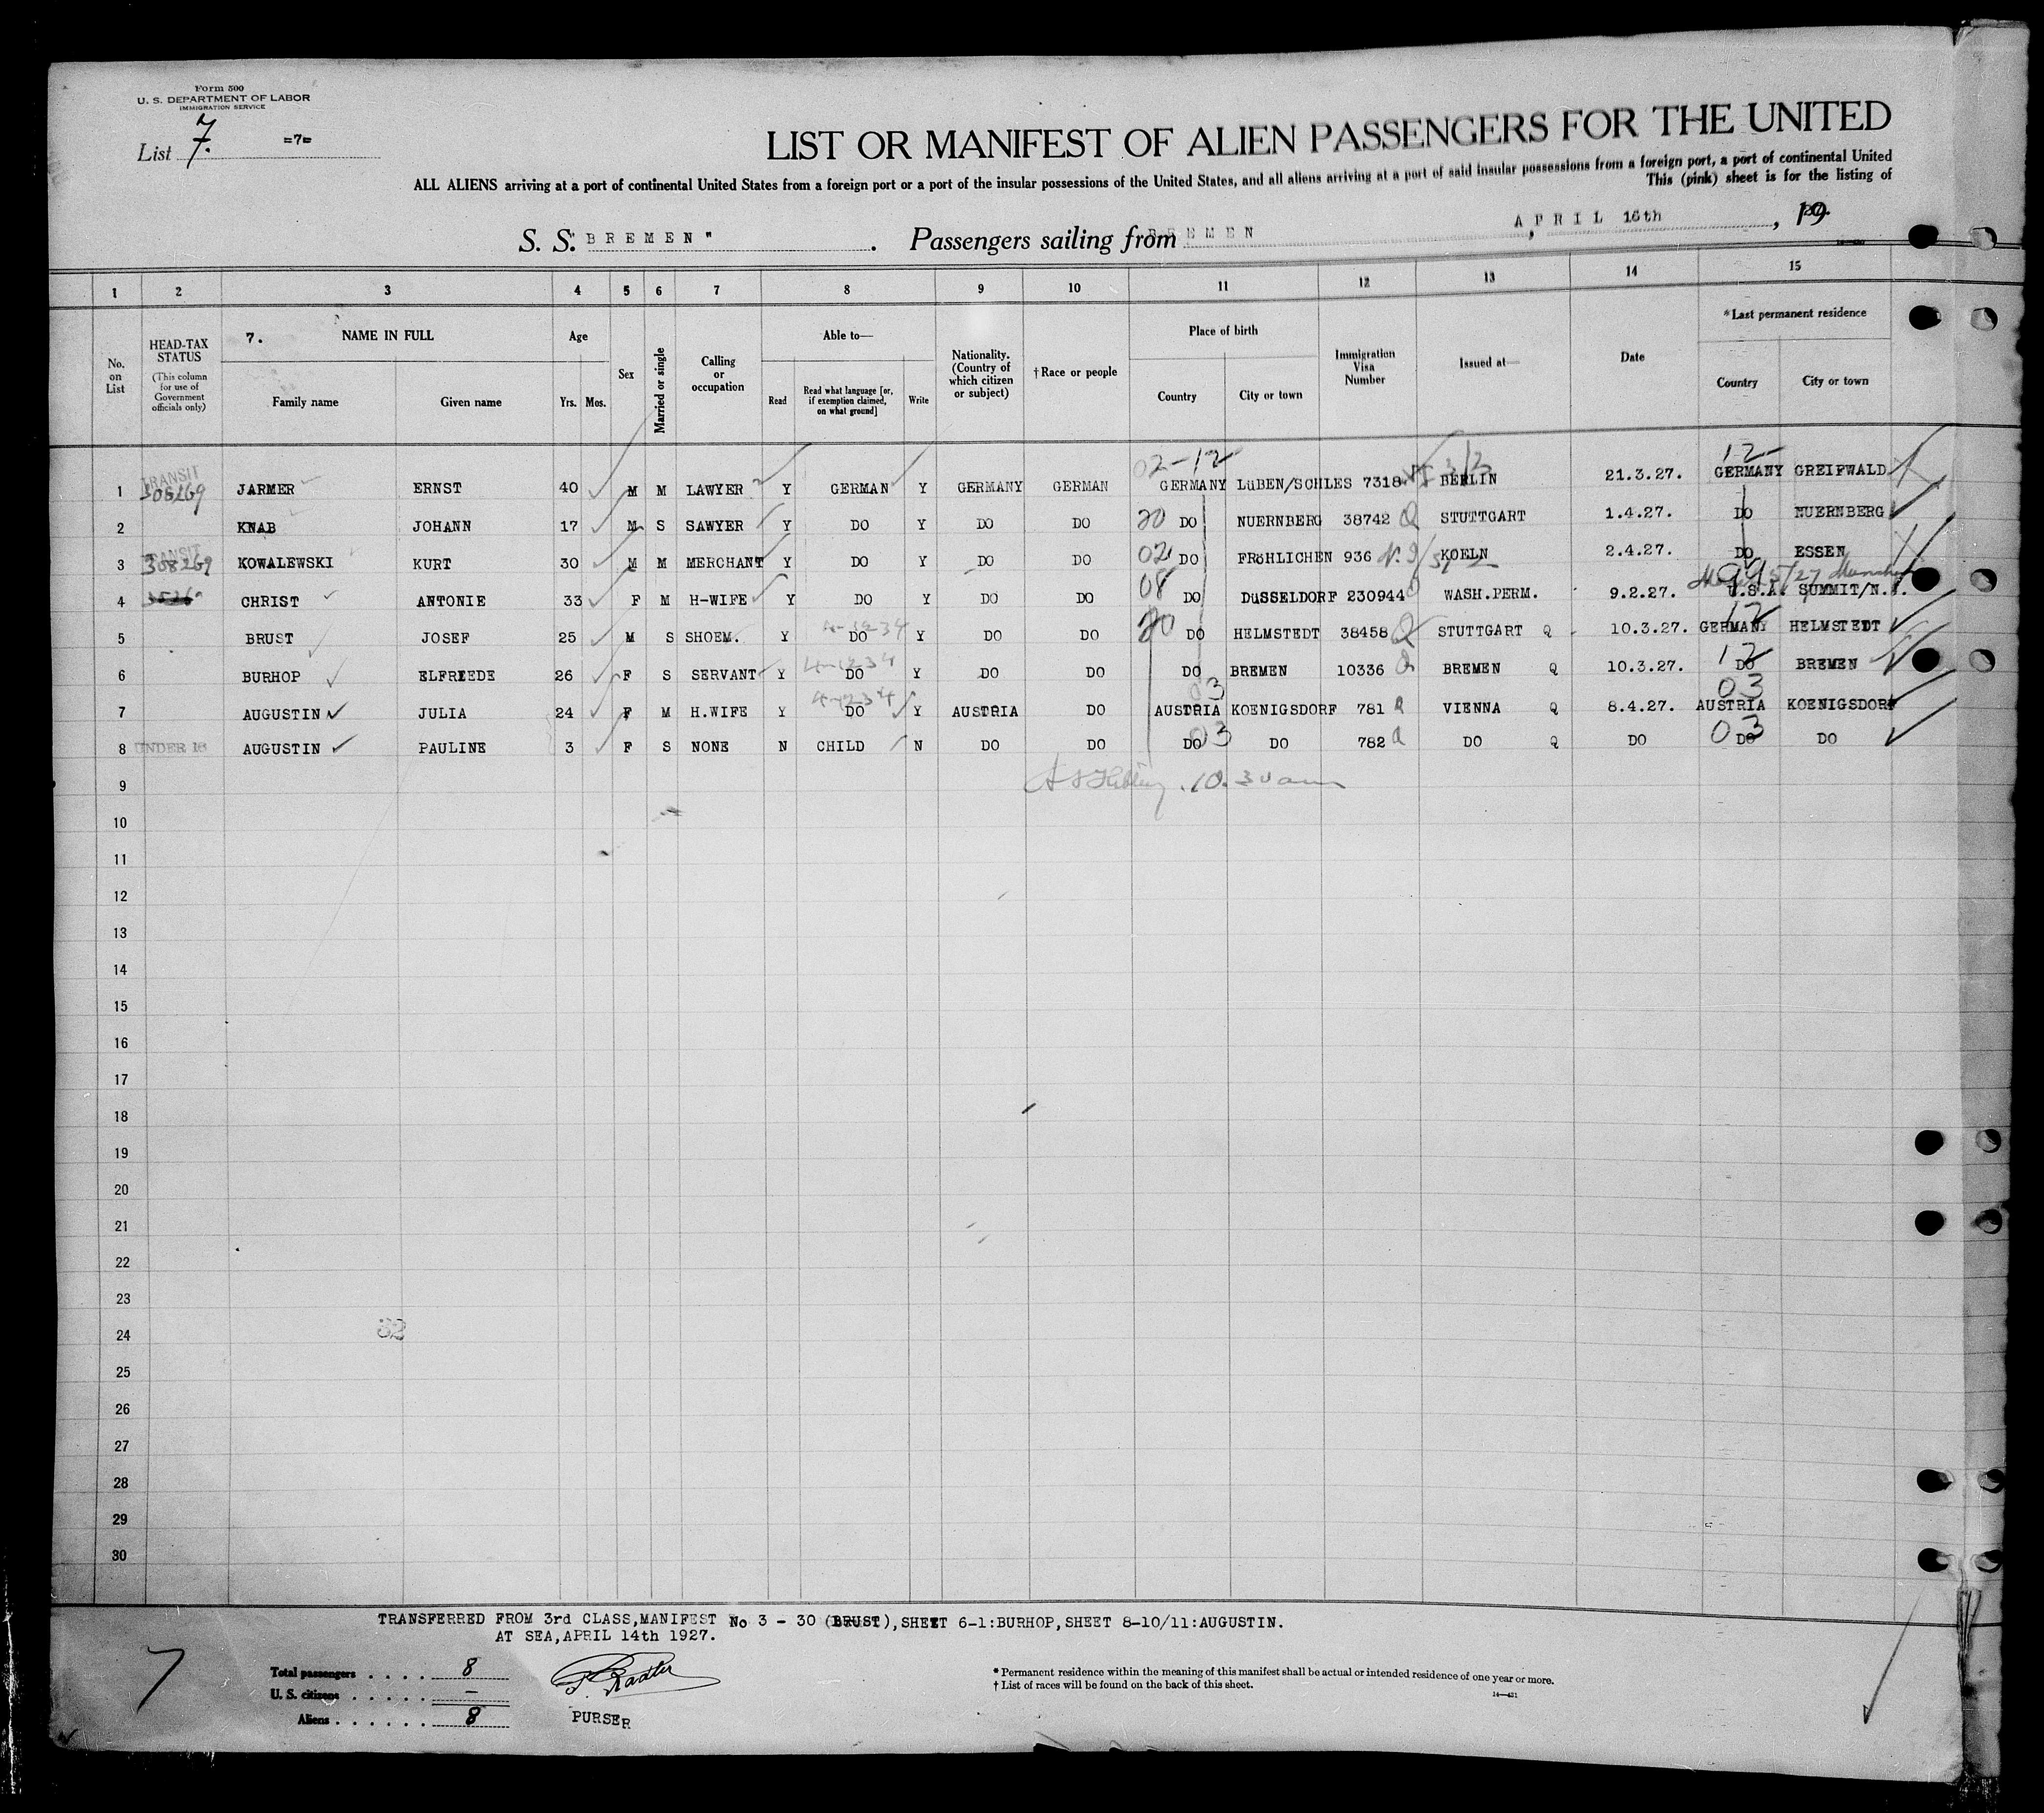 Form 500
U. S. DEPARTMENT OF LABOR
IMMIGRATION SERVICE
List 7. =7=
LIST OR MANIFEST OF ALIEN PASSENGERS FOR THE UNITED
ALL ALIENS arriving at a port of continental United States from a foreign port or a port of the insular possessions of the United States, and all aliens arriving at a port of said insular possessions from a foreign port, a port of continental United
This (pink) sheet is for the listing of
S. S. "BREMEN". Passengers sailing from BREMEN, APRIL 16th, 19
1 2 3 4 5 6 7 8 9 10 11 12 13 14 15
No. on List
HEAD-TAX STATUS
(This column for use of Government officials only)
7. NAME IN FULL
Family name Given name
Age
Yrs. Mos.
Sex
Married or single
Calling or occupation
Able to—
Read
Read what language [or, if exemption claimed, on what ground]
Write
Nationality. (Country of which citizen or subject)
†Race or people
Place of birth
Country City or town
Immigration Visa Number
Issued at—
Date
*Last permanent residence
Country City or town
02-12 12
TRANSIT
1 308269 JARMER ERNST 40 M M LAWYER Y GERMAN Y GERMANY GERMAN GERMANY LüBEN/SCHLES 7318 BERLIN 21.3.27. GERMANY GREIFWALD
2 KNAB JOHANN 17 M S SAWYER Y DO Y DO DO 20 DO NUERNBERG 38742 Q STUTTGART 1.4.27. DO NUERNBERG
TRANSIT
3 308269 KOWALEWSKI KURT 30 M M MERCHANT Y DO Y DO DO 02 DO FRöHLICHEN 936 KOELN 2.4.27. DO ESSEN
08 99
4 CHRIST ANTONIE 33 F M H-WIFE Y DO Y DO DO DO DüSSELDORF 230944 WASH.PERM. 9.2.27. U.S.A. SUMMIT/N.J.
12
5 BRUST JOSEF 25 M S SHOEM. Y DO Y DO DO 20 DO HELMSTEDT 38458 Q STUTTGART Q 10.3.27. GERMANY HELMSTEDT
12
6 BURHOP ELFREEDE 26 F S SERVANT Y DO Y DO DO DO BREMEN 10336 Q BREMEN Q 10.3.27. DO BREMEN
03 03
7 AUGUSTIN JULIA 24 F M H.WIFE Y DO Y AUSTRIA DO AUSTRIA KOENIGSDORF 781 Q VIENNA Q 8.4.27. AUSTRIA KOENIGSDORF
03 03
8 UNDER 16 AUGUSTIN PAULINE 3 F S NONE N CHILD N DO DO DO DO 782 Q DO Q DO DO DO
9 10.30 am
10
11
12
13
14
15
16
17
18
19
20
21
22
23
32
24
25
26
27
28
29
30
TRANSFERRED FROM 3rd CLASS,MANIFEST No 3 - 30 (BRUST),SHEET 6-1:BURHOP,SHEET 8-10/11:AUGUSTIN.
AT SEA,APRIL 14th 1927.
7
Total passengers . . . . 8
U. S. citizens . . . . . —
Aliens . . . . . . 8
PURSER
* Permanent residence within the meaning of this manifest shall be actual or intended residence of one year or more.
† List of races will be found on the back of this sheet.